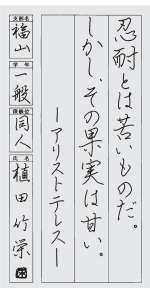 忍耐とは苦いものだ。
しかし、その果実は甘い。
―アリストテレス―
支部名 福山
学年 一般
段級位 同人
氏名 植田竹栄